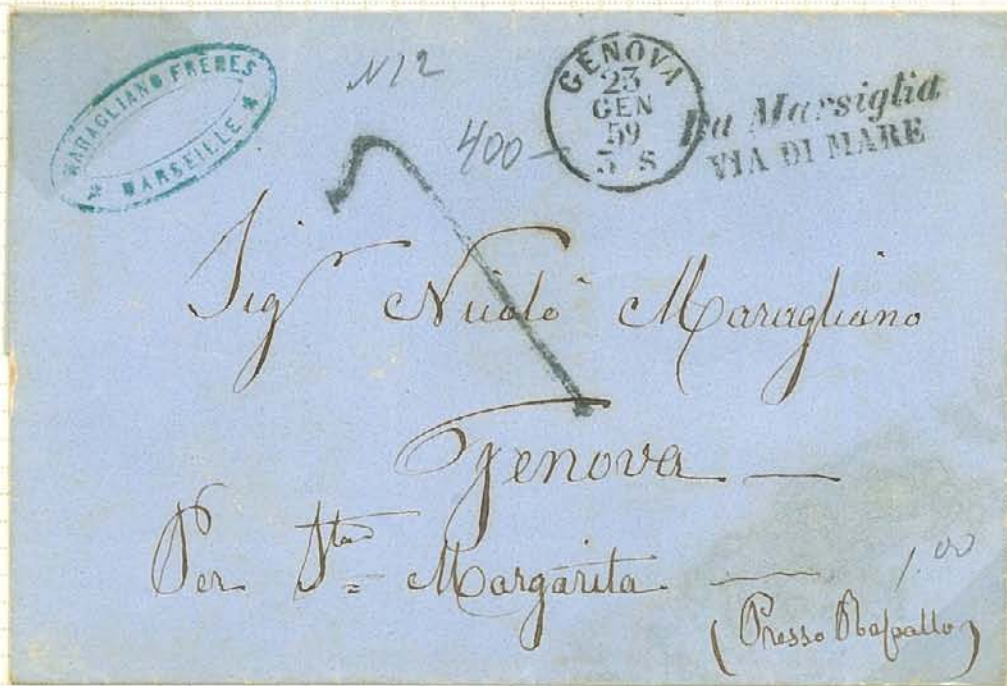 MARAGLIANO FRERES
* MARSEILLE *
N12
400
GENOVA
23
GEN
59
3 S
Da Marsiglia
VIA DI MARE
Sigr Nicolò Maragliano
Genova
Per Sta Margarita
1.00
(Presso Rapallo)